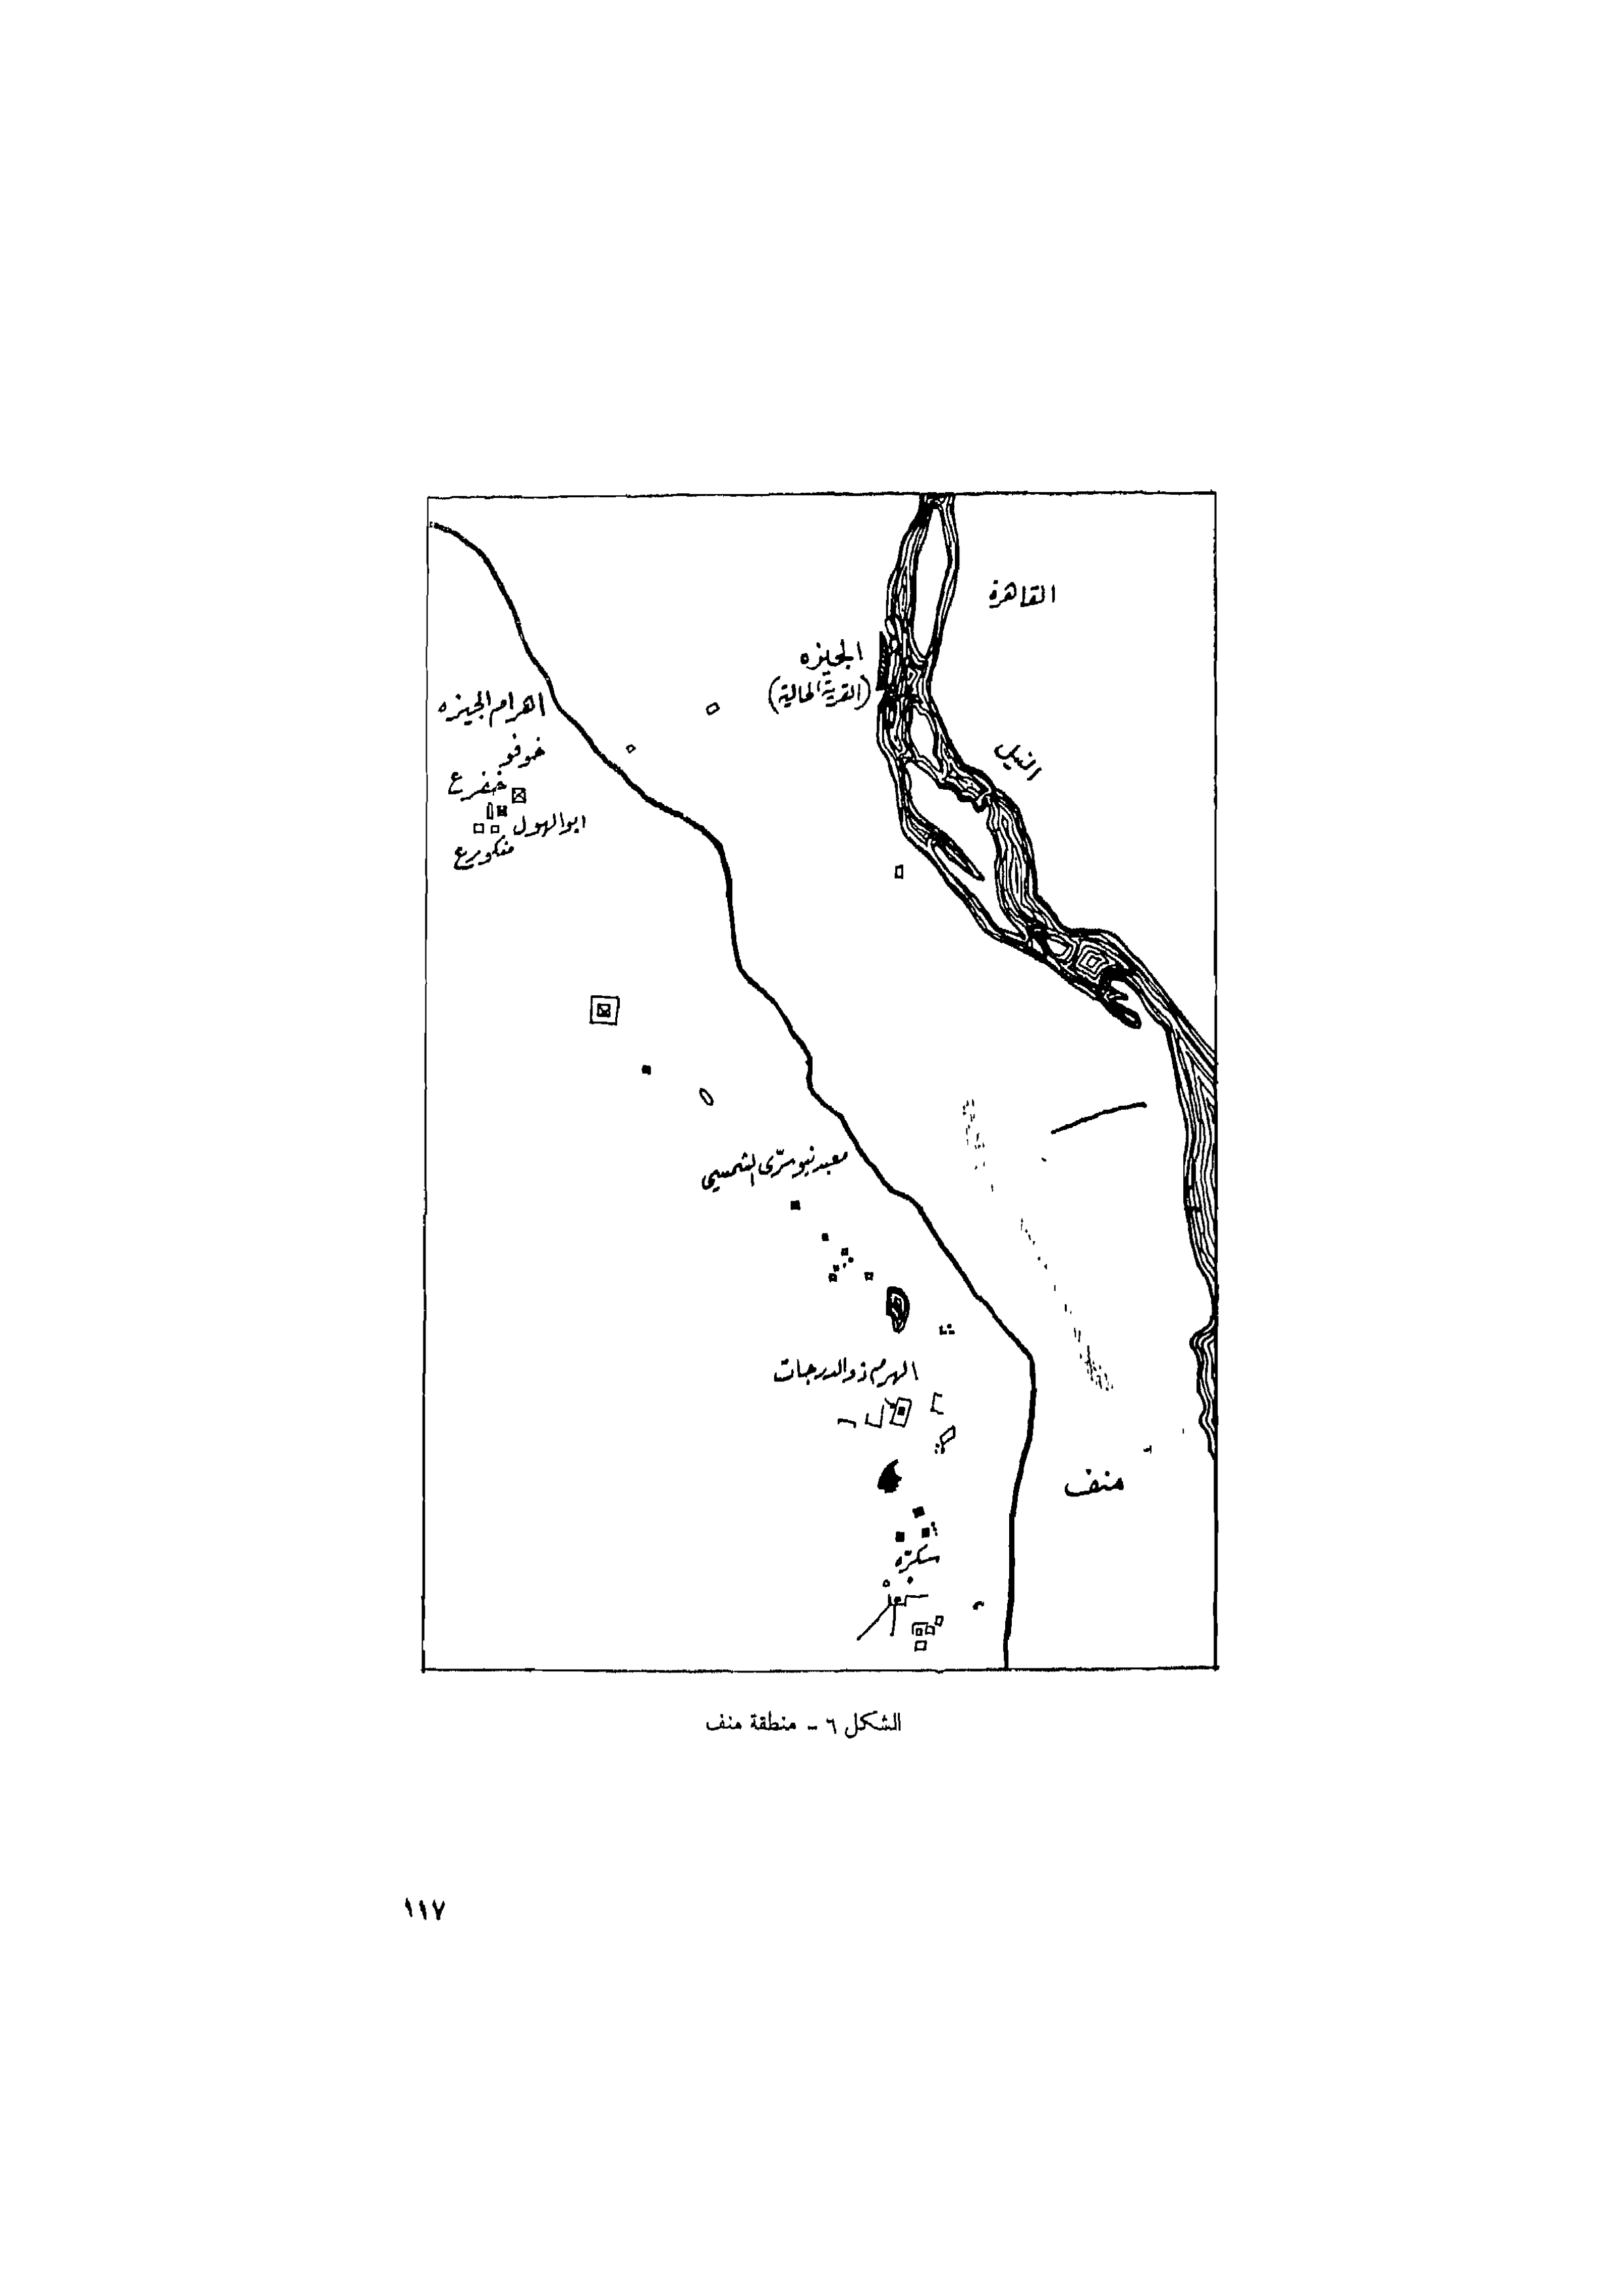 القاهرة
الجيزه
(القرية الحالية)
النيل
اهرام الجيزه
خوفو
خفرع
ابو الهول
منكورع
معبد نيوسرّى الشمسي
الهرم ذو الدرجات
منف
سكرّه
الشكل ٦ - منطقة منف
١١٧